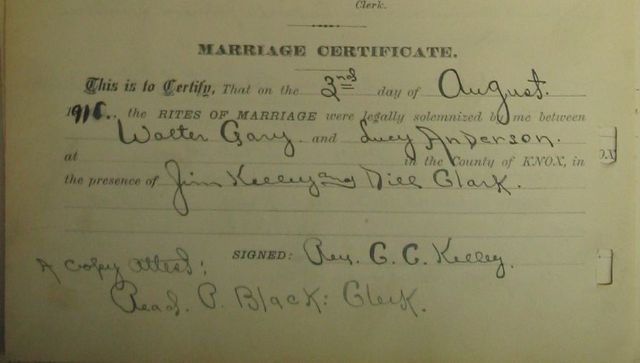 Clerk.
MARRIAGE CERTIFICATE.
This is to Certify, That on the 3nd day of August.
the RITES OF MARRIAGE were legally solemnized by me between
Walter Gary and Lucy Anderson.
at in the County of KNOX, in
the presence of Jim Kelley and Dill Clark.
SIGNED: Rev. C. C. Kelley.
A copy attest:
Read. P. Black: Clerk.